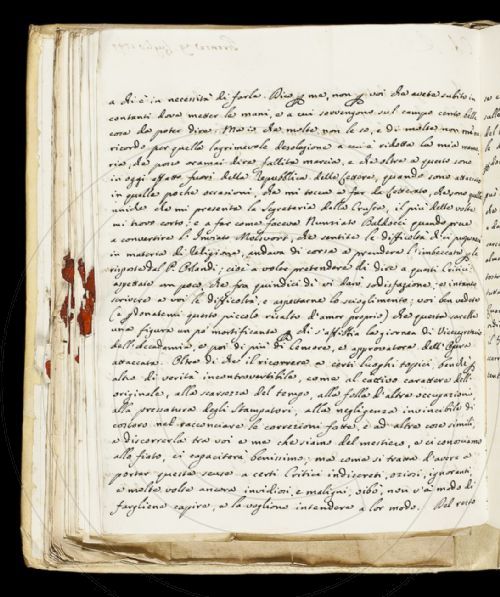 a chi è in necessità di farla. Dico p me, non p voi che avete subito in
contanti dove metter le mani, e a cui sovvengono sul campo cento belle
cose da poter dire. Ma io che molte non le so, e di molte non mi
ricordo per quella lagrimevole desolazione a cui è ridotta la mia memo
ria, da poco oramai dire fallita marcia, e che oltre a questo sono
in oggi affatto fuori della Repubblica delle Lettere, quando sono attacato
in quelle poche occasioni, che mi tocca a far da Letterato, che son quelle
uniche che mi presenta la Segreteria della Crusca, il più delle volte
mi trovo corto; e a far come faceva Nunziato Baldocci quando prese
a convertire l' che sentite le difficoltà
in materia di Religione, andava di corsa a prendere l'imbeccata p le
risposte dal P. cioè a voler pretendere di dire a questi Critici
aspettate un poco, che fra quindici dì vi darò sodisfazione, e intanto
scrivere a voi le difficoltà, e aspettarne lo scioglimento; voi ben vedete
(e p donatemi questo piccolo rialto d'amor proprio) che questa sarebbe
una figura un po' mortificante p chi s'affibbia la giornea di Vicesegretario
dell'Accademia, e poi di più di Censore, e approvatore dell'Opera
attaccata. Oltre di che il ricorrere a certi luoghi topici, benchè p
altro di verità incontrovertibile, come al cattivo carattere dell'
originale, alla scarsezza del tempo, alla folla d'altre occupazioni
alla pressatura degli Stampatori, alla negligenza invincibile di
costoro nel racconciare le correzioni fatte, e ad altre cose simili,
a discorrerla tra voi e me che siamo del mestiero, e ci conosciamo
al fiato, ci capacitera benissimo; ma come si tratta d'avere a
portar queste scuse a certi Critici indiscreti, oziosi, ignoranti,
e molte volte ancora invidiosi, e maligni, oibò, non v'è modo di
fargliene capire, e la vogliono intendere a lor modo. Del resto